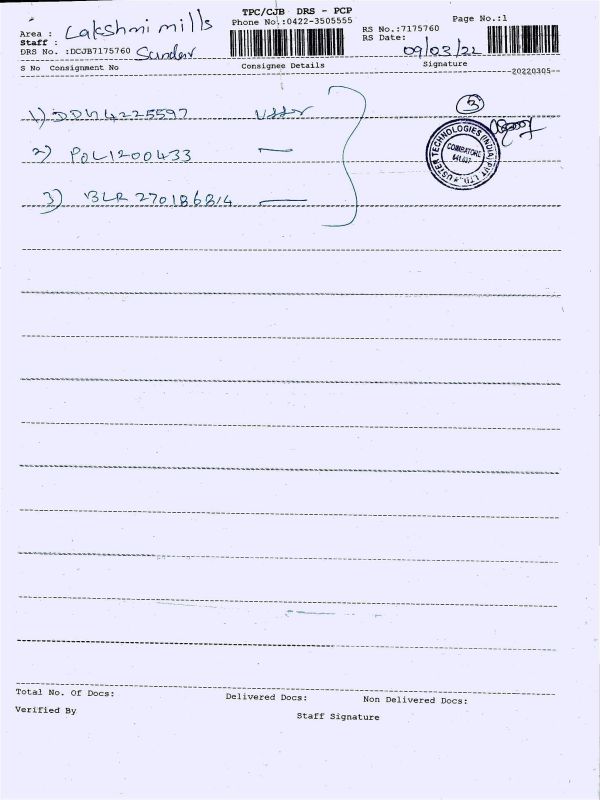 TPC/CJB DRS - PCP
Area : Lakshmi mills Phone No.:0422-3505555 Page No.:1
Staff : Sundar RS No.:7175760
DRS No. :DCJB7175760 RS Date: 09/03/22
S No Consignment No Consignee Details Signature
--20220305--
3
1) 4225597
2) POL1200433 —
3) BLR 270186814 —
USTER TECHNOLOGIES (INDIA) PVT. LTD.
COIMBATORE
641 037
Total No. Of Docs: Delivered Docs: Non Delivered Docs:
Verified By Staff Signature